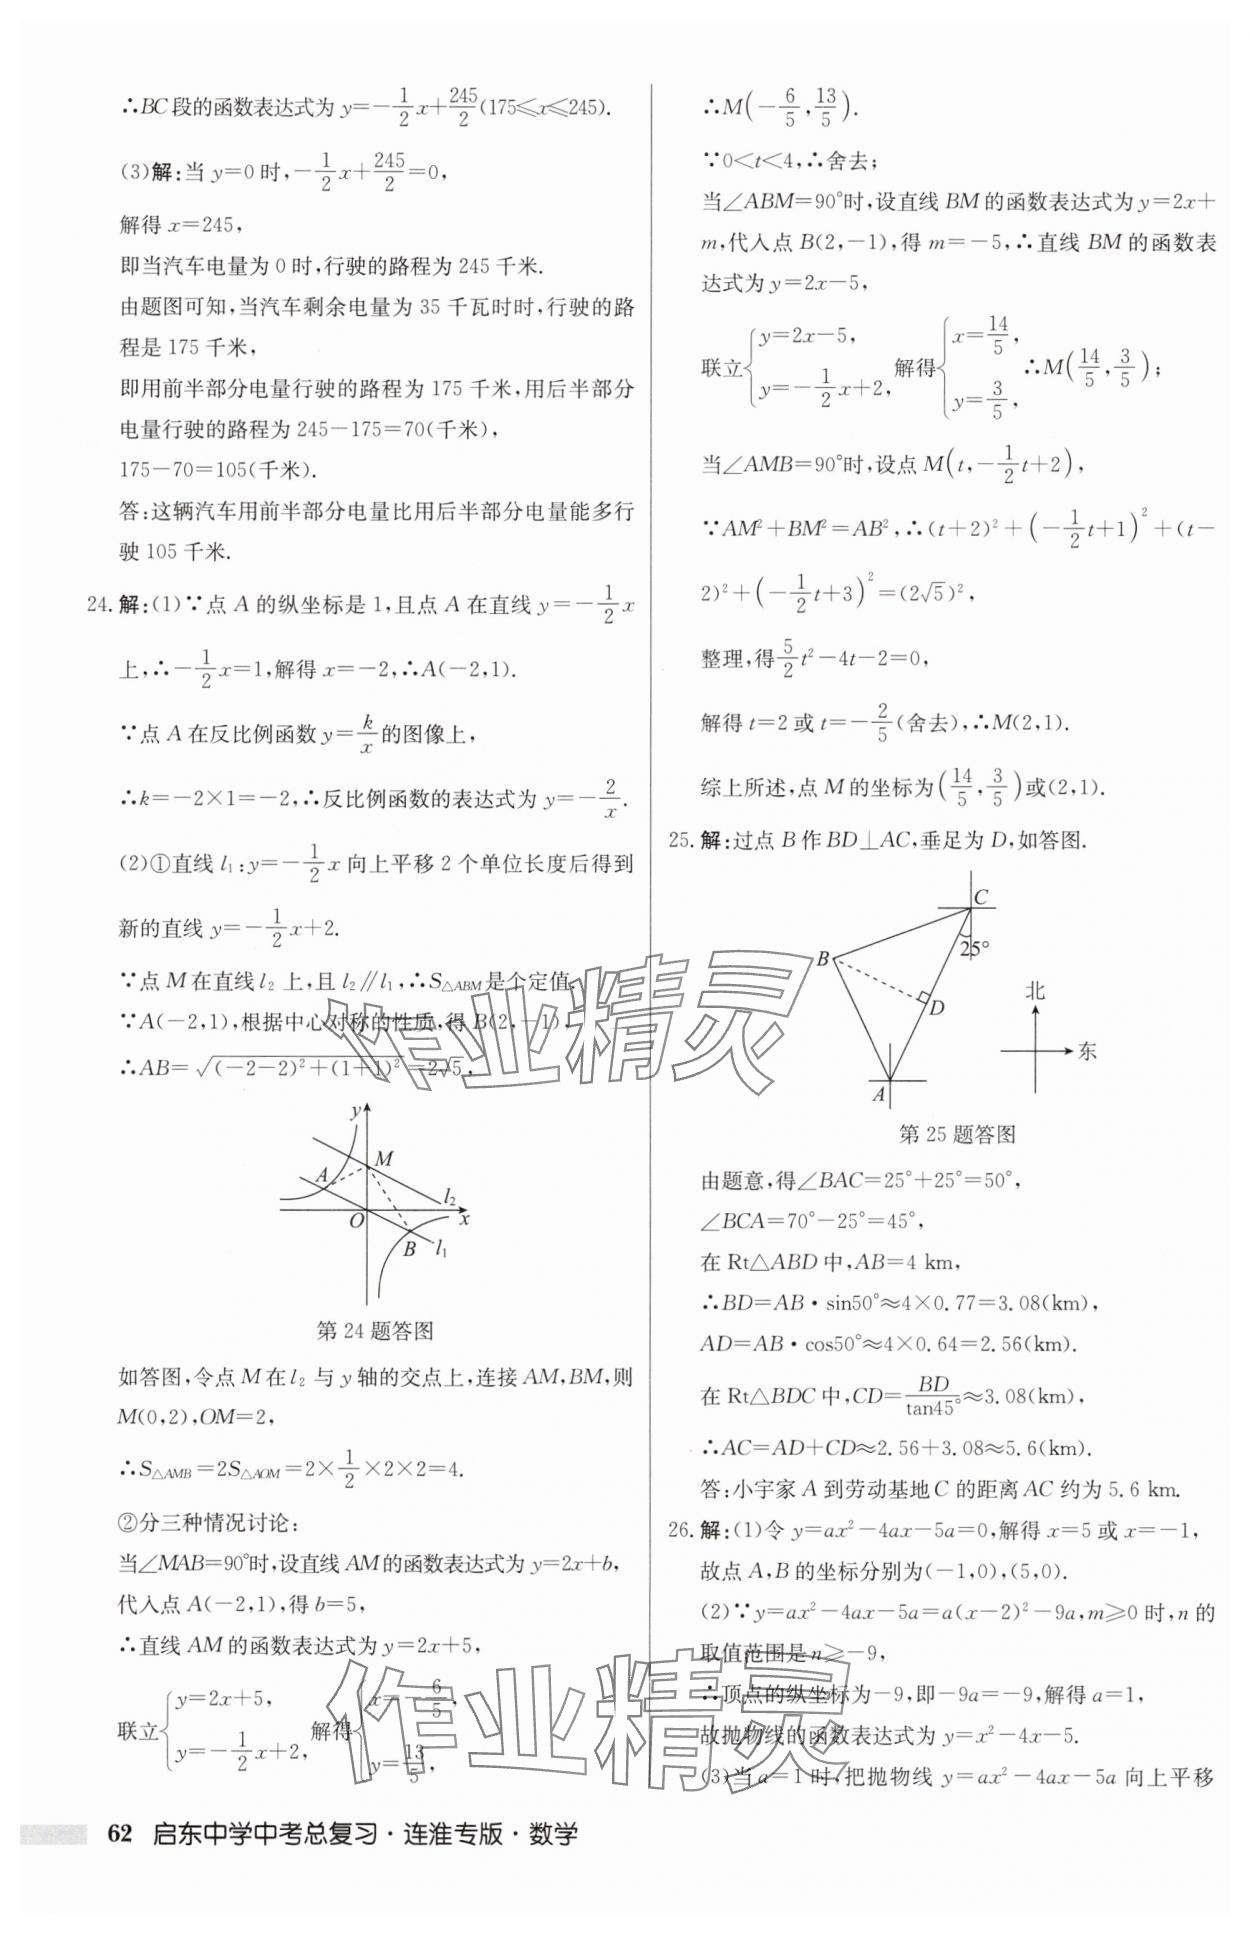 ∴BC段的函数表达式为 y=-1/2x+245/2(175≤x≤245).
(3)解:当 y=0 时,-1/2x+245/2=0,
解得 x=245,
即当汽车电量为 0 时,行驶的路程为 245 千米.
由题图可知,当汽车剩余电量为 35 千瓦时时,行驶的路
程是 175 千米,
即用前半部分电量行驶的路程为 175 千米,用后半部分
电量行驶的路程为 245-175=70(千米),
175-70=105(千米).
答:这辆汽车用前半部分电量比用后半部分电量能多行
驶 105 千米.
24. 解:(1)∵点 A 的纵坐标是 1,且点 A 在直线 y=-1/2x
上,∴-1/2x=1,解得 x=-2,∴A(-2,1).
∵点 A 在反比例函数 y=k/x的图像上,
∴k=-2×1=-2,∴反比例函数的表达式为 y=-2/x.
(2)①直线 l₁:y=-1/2x 向上平移 2 个单位长度后得到
新的直线 y=-1/2x+2.
∵点 M 在直线 l₂ 上,且 l₂∥l₁,∴S△ABM是个定值.
∵A(-2,1),根据中心对称的性质,得 B(2,-1),
∴AB=√((-2-2)²+(1+1)²)=2√5,
y
A
M
l₂
O
x
B
l₁
第 24 题答图
如答图,令点 M 在 l₂ 与 y 轴的交点上,连接 AM,BM,则
M(0,2),OM=2,
∴S△AMB=2S△AOM=2×1/2×2×2=4.
②分三种情况讨论:
当∠MAB=90°时,设直线 AM 的函数表达式为 y=2x+b,
代入点 A(-2,1),得 b=5,
∴直线 AM 的函数表达式为 y=2x+5,
联立{y=2x+5, y=-1/2x+2, 解得{x=-6/5, y=13/5,
∴M(-6/5,13/5).
∵0<t<4,∴舍去;
当∠ABM=90°时,设直线 BM 的函数表达式为 y=2x+
m,代入点 B(2,-1),得 m=-5,∴直线 BM 的函数表
达式为 y=2x-5,
联立{y=2x-5, y=-1/2x+2, 解得{x=14/5, y=3/5, ∴M(14/5,3/5);
当∠AMB=90°时,设点 M(t,-1/2t+2),
∵AM²+BM²=AB²,∴(t+2)²+(-1/2t+1)²+(t-
2)²+(-1/2t+3)²=(2√5)²,
整理,得5/2t²-4t-2=0,
解得 t=2 或 t=-2/5(舍去),∴M(2,1).
综上所述,点 M 的坐标为(14/5,3/5)或(2,1).
25. 解:过点 B 作 BD⊥AC,垂足为 D,如答图.
C
25°
B
D
A
北
东
第 25 题答图
由题意,得∠BAC=25°+25°=50°,
∠BCA=70°-25°=45°,
在 Rt△ABD 中,AB=4 km,
∴BD=AB·sin50°≈4×0.77=3.08(km),
AD=AB·cos50°≈4×0.64=2.56(km),
在 Rt△BDC 中,CD=BD/tan45°≈3.08(km),
∴AC=AD+CD≈2.56+3.08≈5.6(km).
答:小宇家 A 到劳动基地 C 的距离 AC 约为 5.6 km.
26. 解:(1)令 y=ax²-4ax-5a=0,解得 x=5 或 x=-1,
故点 A,B 的坐标分别为(-1,0),(5,0).
(2)∵y=ax²-4ax-5a=a(x-2)²-9a,m≥0 时,n 的
取值范围是 n≥-9,
∴顶点的纵坐标为-9,即-9a=-9,解得 a=1,
故抛物线的函数表达式为 y=x²-4x-5.
(3)当 a=1 时,把抛物线 y=ax²-4ax-5a 向上平移
作业精灵
作业精灵
62 启东中学中考总复习·连淮专版·数学